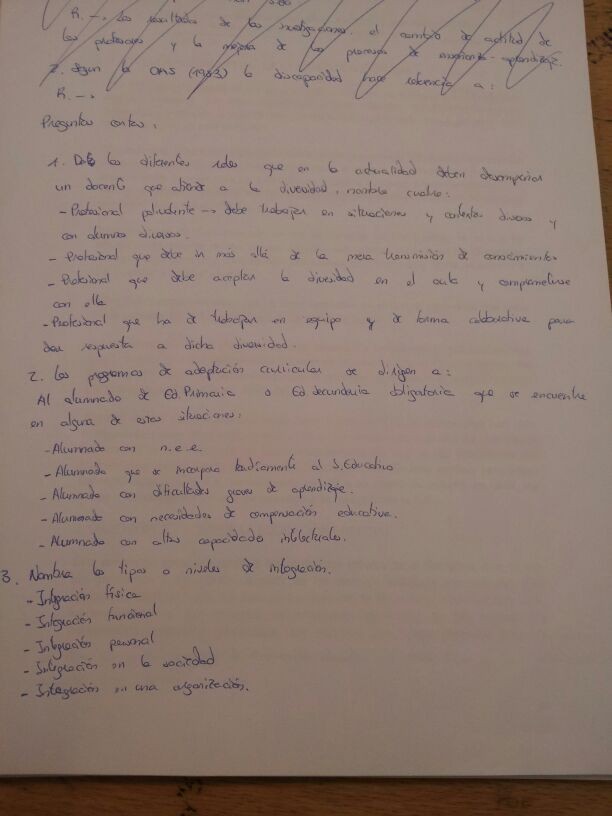 R. --> Los resultados de las investigaciones, el cambio de actitud de
los profesores y la mejora de los procesos de enseñanza-aprendizaje.
2. Según la OMS (1983) la discapacidad hace referencia a:
R. -->
Preguntas cortas:
1. De los diferentes roles que en la actualidad deben desempeñar
un docente que atiende a la diversidad, nombra cuatro:
- Profesional polivalente --> debe trabajar en situaciones y contextos diversos y
con alumnos diversos.
- Profesional que debe ir más allá de la mera transmisión de conocimientos
- Profesional que debe aceptar la diversidad en el aula y comprometerse
con ella
- Profesional que ha de trabajar en equipo y de forma colaborativa para
dar respuesta a dicha diversidad.
2. Los programas de adaptación curricular se dirigen a:
Al alumnado de Ed. Primaria o Ed secundaria obligatoria que se encuentre
en alguna de estas situaciones:
- Alumnado con n.e.e.
- Alumnado que se incorpora tardíamente al S. Educativo
- Alumnado con dificultades graves de aprendizaje.
- Alumnado con necesidades de compensación educativa.
- Alumnado con altas capacidades intelectuales.
3. Nombra los tipos o niveles de integración.
- Integración física
- Integración funcional
- Integración personal
- Integración en la sociedad
- Integración en una organización.